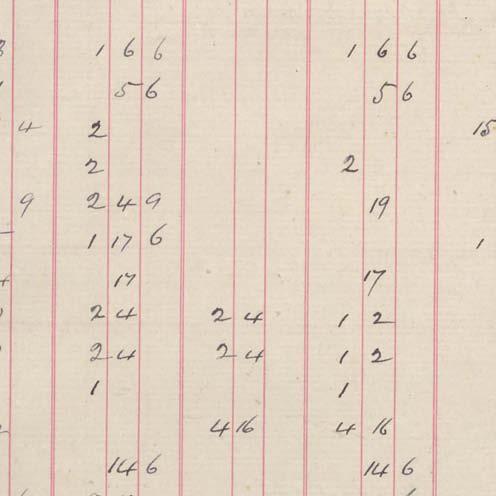 1 6 6 1 6 6
5 6 5 6
4 2 15
2 2
9 2 4 9 19
1 17 6 1
17 17
2 4 2 4 1 2
2 4 2 4 1 2
1 1
4 16 4 16
14 6 14 6